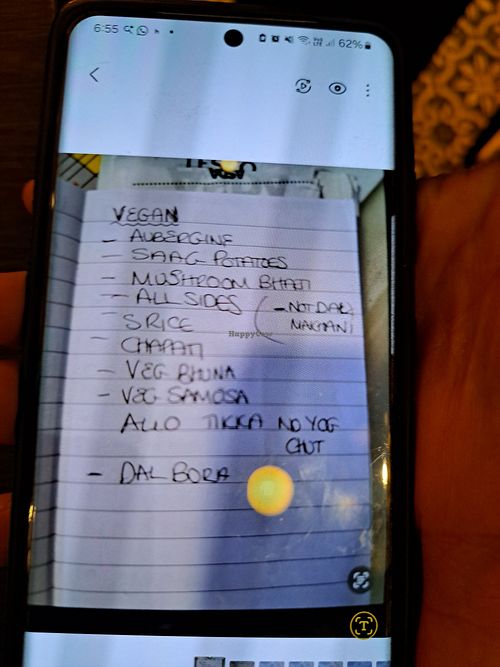 6:55
62%
TESCO
VEGAN
- AUBERGINE
- SAAG POTATOES
- MUSHROOM BHAJI
- ALL SIDES (- NOT DAL
MAKHANI
- S RICE
- CHAPATI
- VEG BHUNA
- VEG SAMOSA
ALLO TIKKA NO YOG
CHUT
- DAL BORA
HappyCow
T